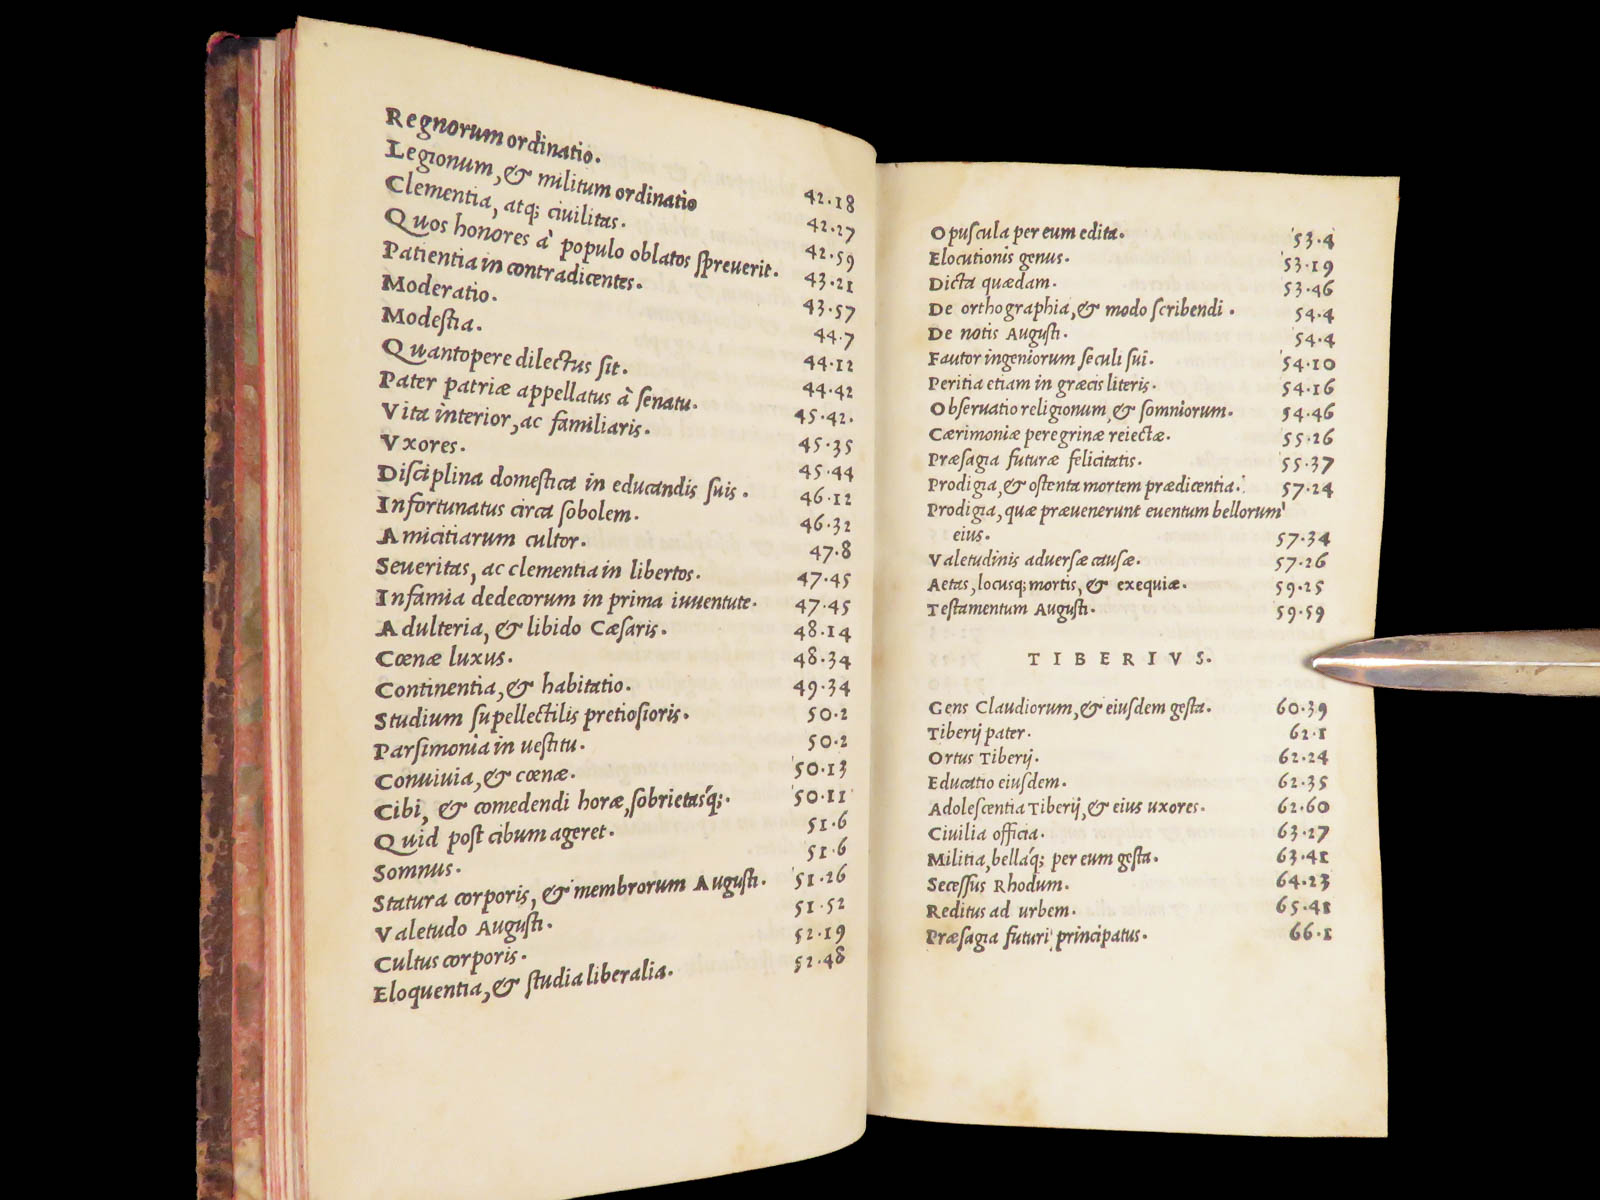 Regnorum ordinatio. 42.18
Legionum, & militum ordinatio 42.27
Clementia, atq; ciuilitas. 42.59
Quos honores à populo oblatos ſpreuerit. 43.21
Patientia in contradicentes. 43.57
Moderatio. 44.7
Modeſtia. 44.12
Quantopere dilectus ſit. 44.42
Pater patriæ appellatus à ſenatu. 45.42.
Vita interior, ac familiaris. 45.35
Vxores. 45.44
Diſciplina domeſtica in educandis ſuis. 46.12
Infortunatus circa ſobolem. 46.32
Amicitiarum cultor. 47.8
Seueritas, ac clementia in libertos. 47.45
Infamia dedecorum in prima iuuentute. 47.45
Adulteria, & libido Cæſaris. 48.14
Cœnæ luxus. 48.34
Continentia, & habitatio. 49.34
Studium ſupellectilis pretioſioris. 50.2
Parſimonia in ueſtitu. 50.2
Conuiuia, & cœnæ. 50.13
Cibi, & comedendi horæ, ſobrietasq́; 50.11
Quid poſt cibum ageret. 51.6
Somnus. 51.6
Statura corporis, & membrorum Auguſti. 51.26
Valetudo Auguſti. 51.52
Cultus corporis. 52.19
Eloquentia, & ſtudia liberalia. 52.48
Opuſcula per eum edita. 53.4
Elocutionis genus. 53.19
Dicta quædam. 53.46
De orthographia, & modo ſcribendi. 54.4
De notis Auguſti. 54.4
Fautor ingeniorum ſeculi ſui. 54.10
Peritia etiam in græcis literis. 54.16
Obſeruatio religionum & ſomniorum. 54.46
Cærimoniæ peregrinæ reiectæ. 55.26
Præſagia futuræ felicitatis. 55.37
Prodigia, & oſtenta mortem prædicentia. 57.24
Prodigia, quæ præuenerunt euentum bellorum
eius. 57.34
Valetudinis aduerſæ cauſæ. 57.26
Aetas, locusq; mortis, & exequiæ. 59.25
Teſtamentum Auguſti. 59.59
TIBERIVS.
Gens Claudiorum, & eiuſdem geſta. 60.39
Tiberij pater. 62.1
Ortus Tiberij. 62.24
Educatio eiuſdem. 62.35
Adoleſcentia Tiberij, & eius uxores. 62.60
Ciuilia officia. 63.27
Militia, bellaq́; per eum geſta. 63.41
Seceſſus Rhodum. 64.23
Reditus ad urbem. 65.41
Præſagia futuri principatus. 66.1